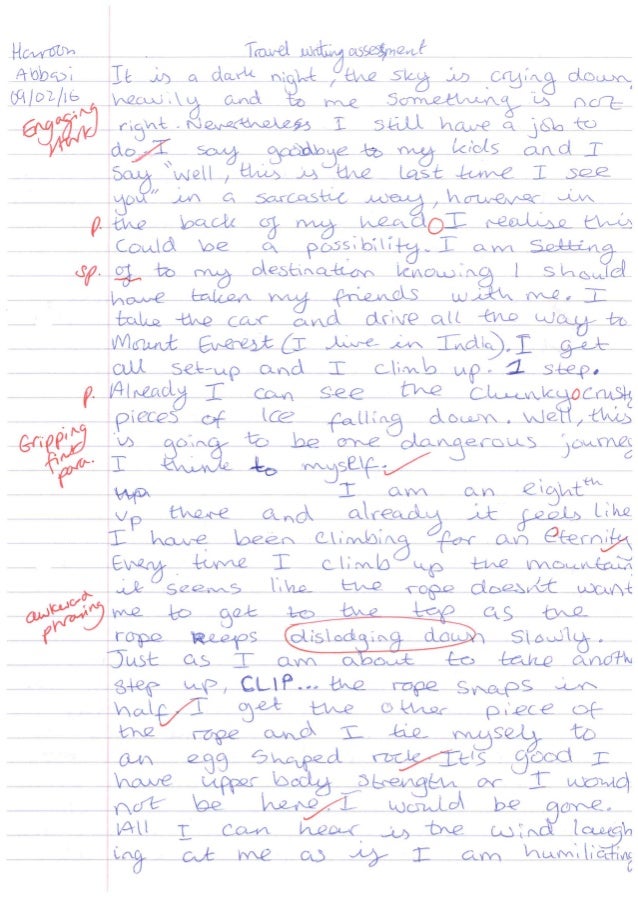 Haroon Travel writing assesment
Abbasi It is a dark night, the sky is crying down,
09/02/16 heavily and to me something is not
Engaging start right. Nevertheless I still have a job to
do. I say goodbye to my kids and I
say "well, this is the last time I see
you" in a sarcastic way, however in
p. the back of my head I realise this
could be a possibility. I am setting
sp. of to my destination knowing I should
have taken my friends with me. I
take the car and drive all the way to
Mount Everest (I live in India). I get
all set-up and I climb up. 1 step.
p. Already I can see the chunky crusty
pieces of Ice falling down. Well, this
Gripping first para. is going to be one dangerous journey
I think to myself.
up I am an eighth
up there and already it feels like
I have been climbing for an eternity
Every time I climb up the mountain
it seems like the rope doesn't want
awkward phrasing me to get to the top as the
rope keeps dislodging down slowly.
Just as I am about to take anoth
step up, CLIP... the rope snaps in
half. I get the other piece of
the rope and I tie myself to
an egg shaped rock. It's good I
have upper body strength or I would
not be here. I would be gone.
All I can hear is the wind laugh
ing at me as if I am humiliating